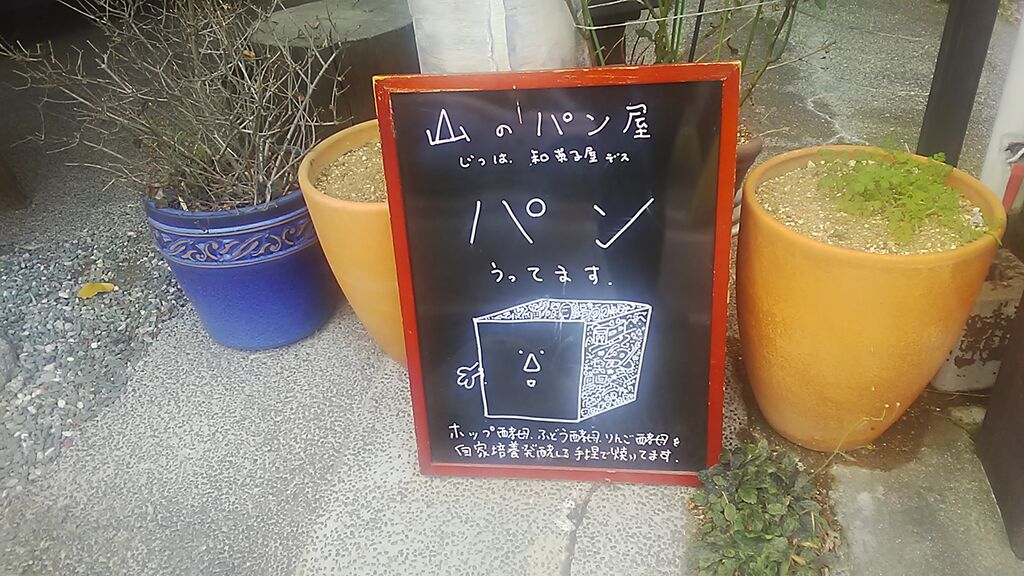 山のパン屋
じつは、和菓子屋デス
パン
うってます.
ホップ酵母、ぶどう酵母、りんご酵母を
自家培養発酵し手捏で焼いてます.